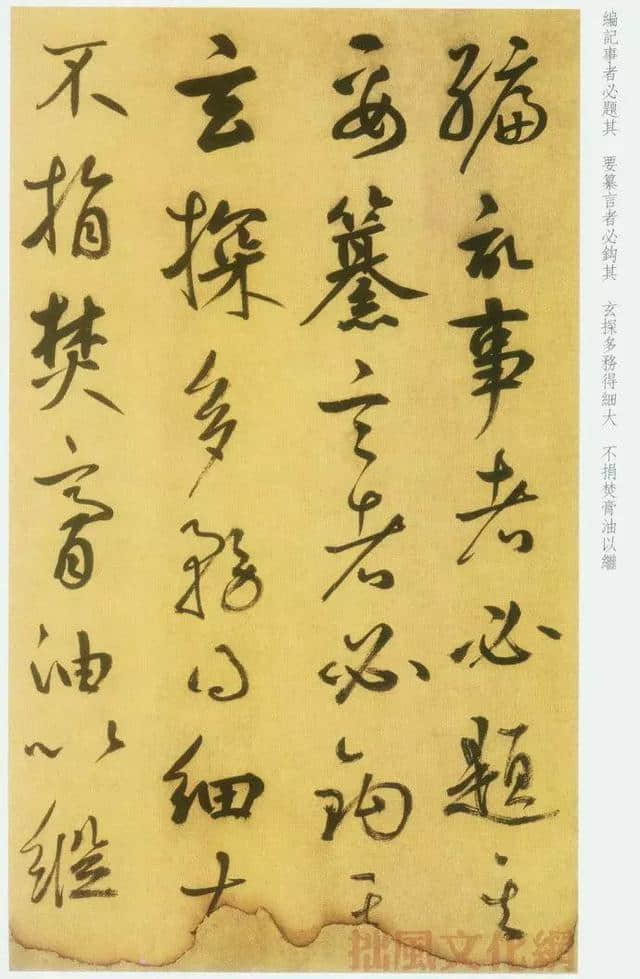 編記事者必題其 要纂言者必鈎其 玄探多務得細大 不捐焚膏油以繼
編記事者必題其
要纂言者必鈎其
玄探多務得細大
不捐焚膏油以繼
拙風文化網